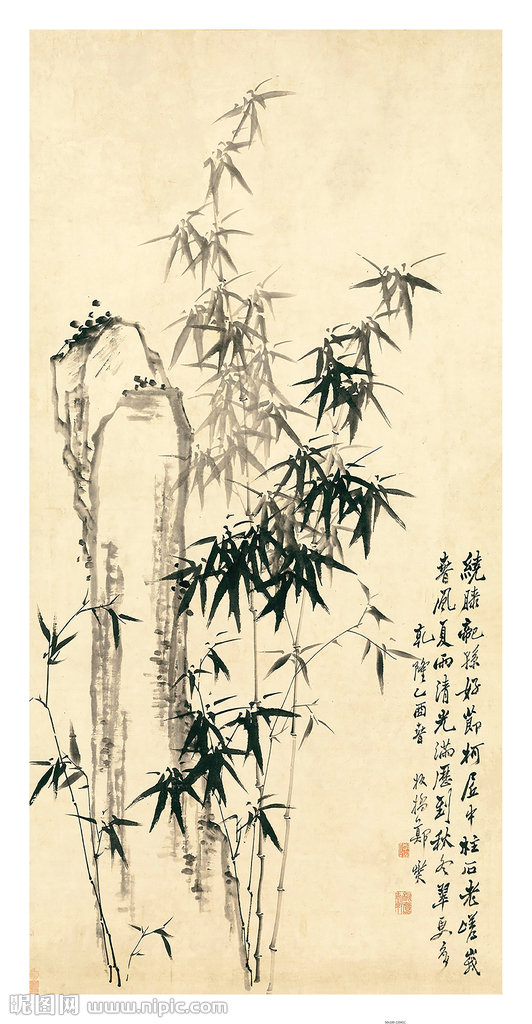 繞膝龍孫好節柯居中柱石老嵯峨
春風夏雨清光滿歷到秋冬翠更多
乾隆乙酉春 板橋鄭燮
昵图网 www.nipic.com